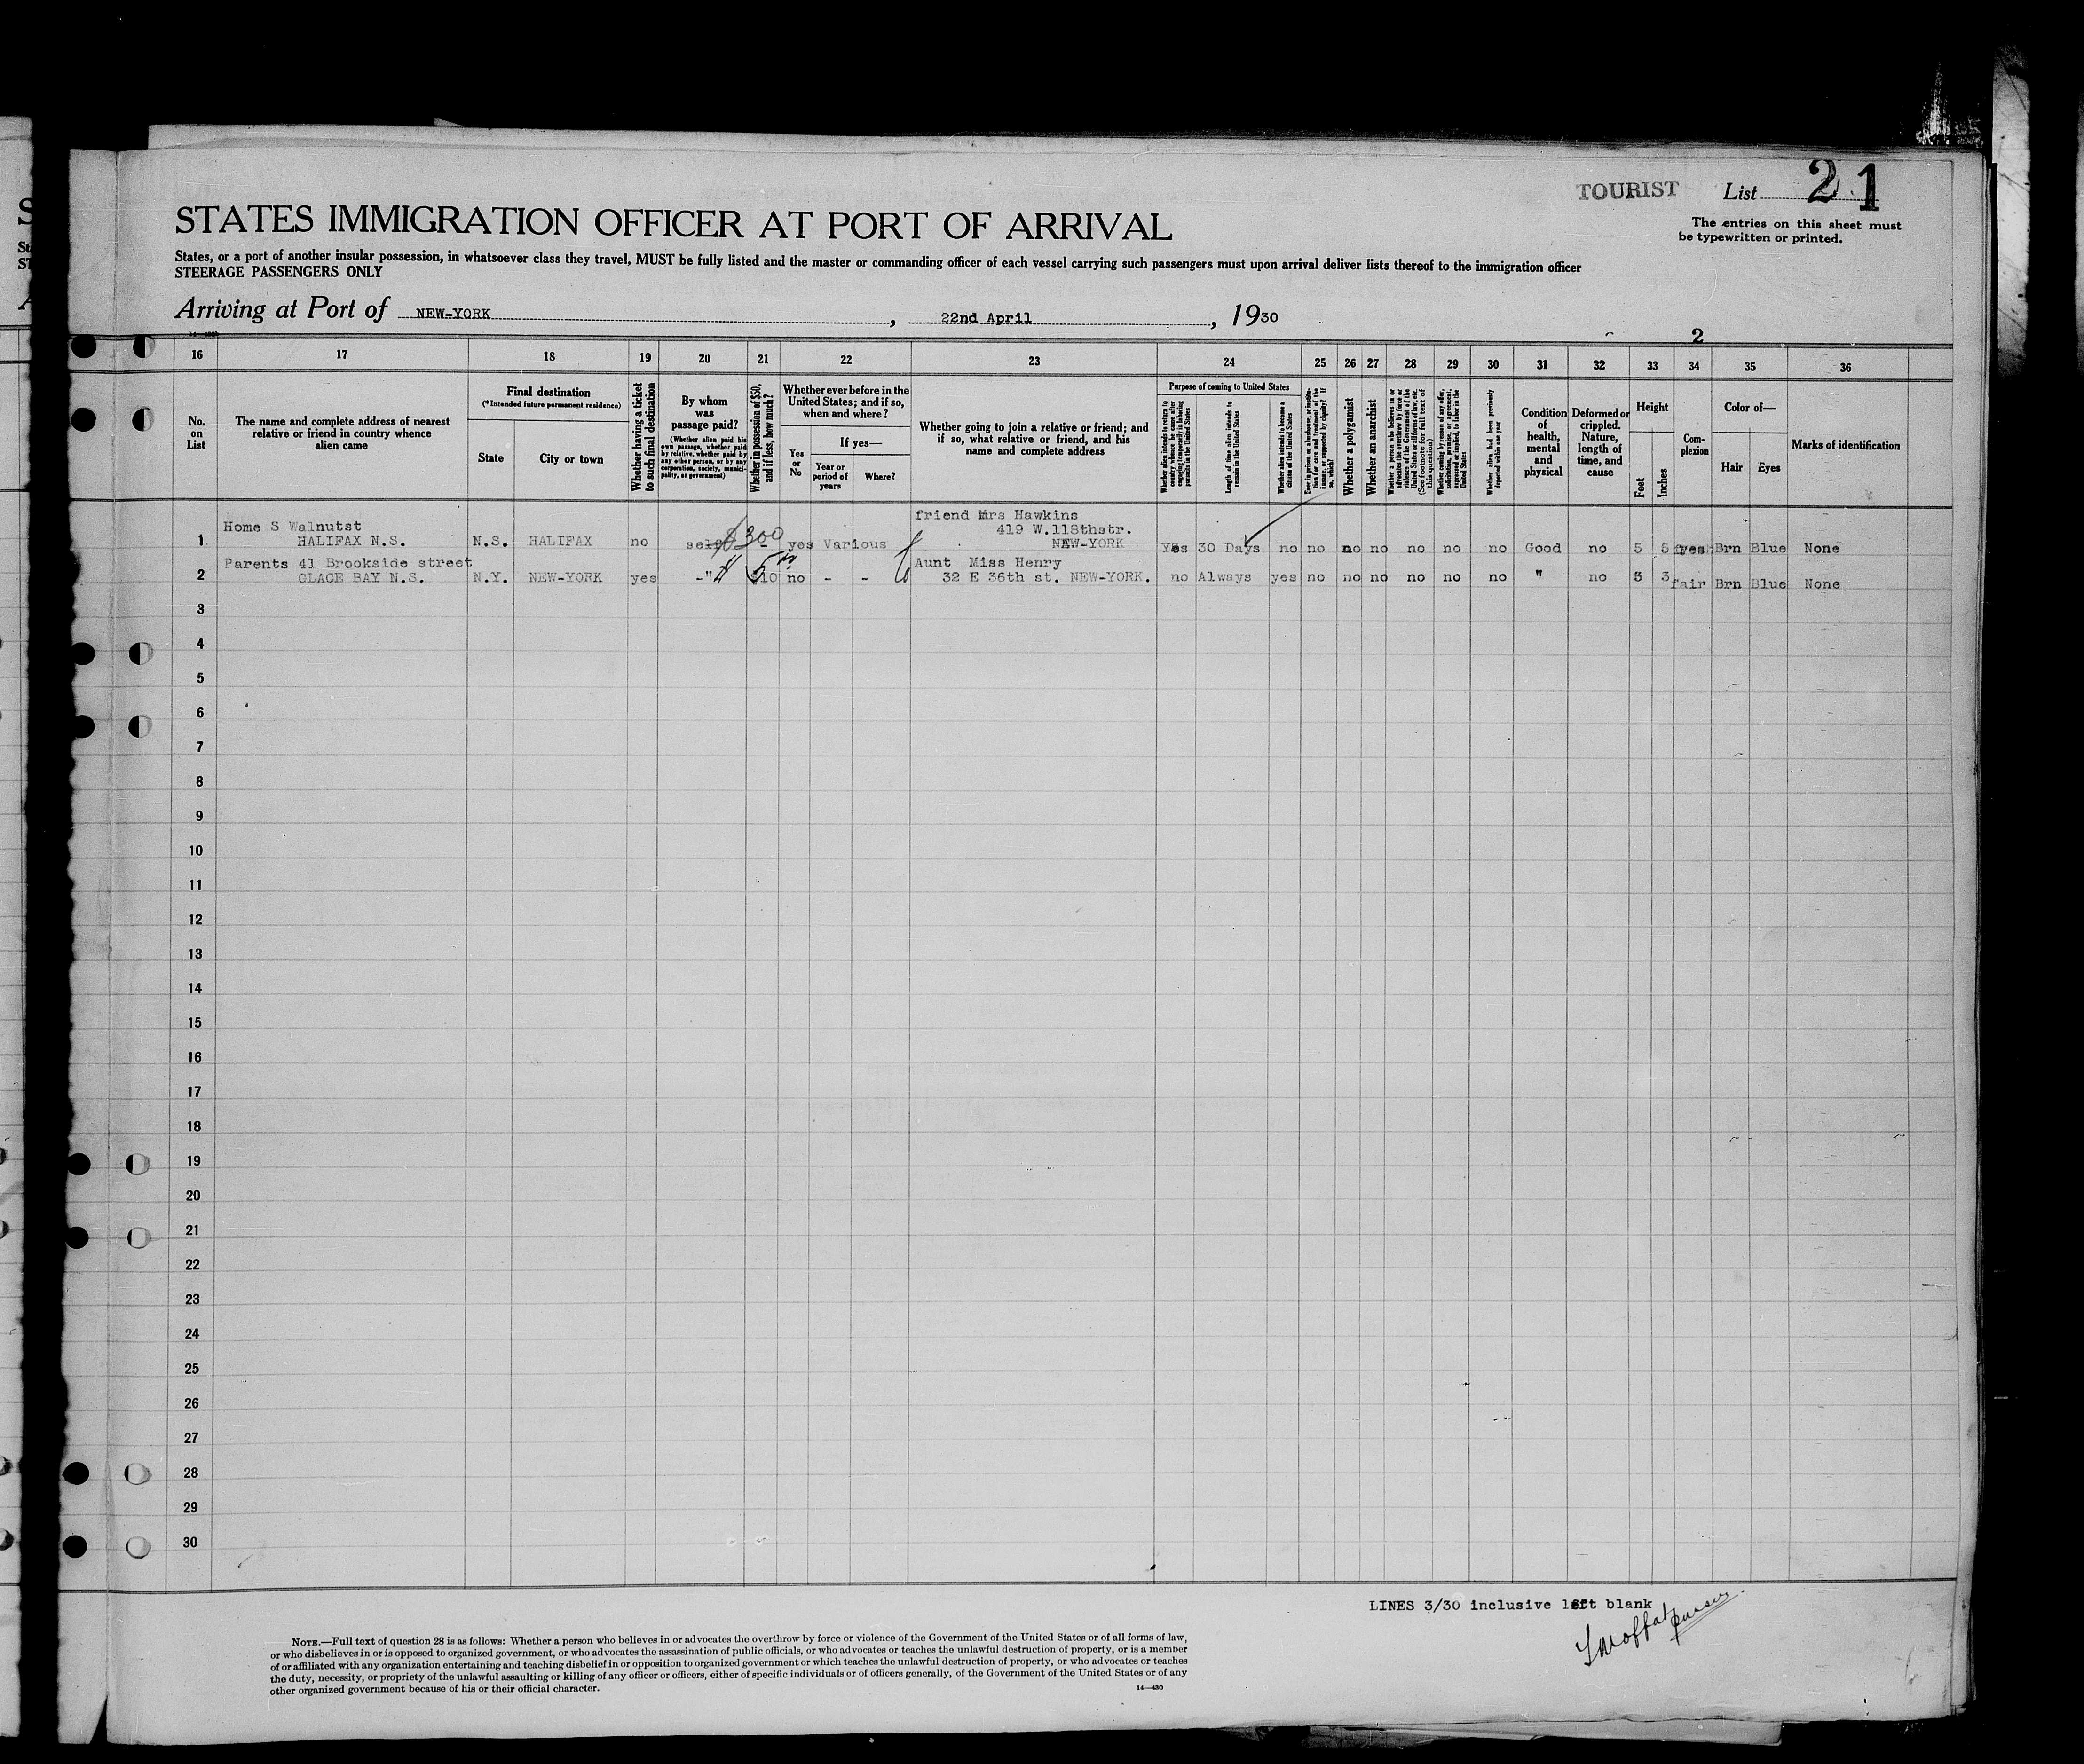 TOURIST List 2 1
STATES IMMIGRATION OFFICER AT PORT OF ARRIVAL
The entries on this sheet must
be typewritten or printed.
States, or a port of another insular possession, in whatsoever class they travel, MUST be fully listed and the master or commanding officer of each vessel carrying such passengers must upon arrival deliver lists thereof to the immigration officer
STEERAGE PASSENGERS ONLY
Arriving at Port of NEW-YORK, 22nd April, 1930
2
16 17 18 19 20 21 22 23 24 25 26 27 28 29 30 31 32 33 34 35 36
No.
on
List
The name and complete address of nearest
relative or friend in country whence
alien came
Final destination
(*Intended future permanent residence)
State
City or town
Whether having a ticket
to such final destination
By whom
was
passage paid?
(Whether alien paid his
own passage, whether paid
by relative, whether paid by
any other person, or by any
corporation, society, munici-
pality, or government)
Whether in possession of $50,
and if less, how much?
Whether ever before in the
United States; and if so,
when and where?
If yes—
Yes
or
No
Year or
period of
years
Where?
Whether going to join a relative or friend; and
if so, what relative or friend, and his
name and complete address
Purpose of coming to United States
Whether alien intends to return to
country whence he came after
engaging temporarily in laboring
pursuits in the United States
Length of time alien intends to
remain in the United States
Whether alien intends to become a
citizen of the United States
Ever in prison or almshouse, or institu-
tion for care and treatment of the
insane, or supported by charity? If
so, which?
Whether a polygamist
Whether an anarchist
Whether a person who believes in or
advocates the overthrow by force or
violence of the Government of the
United States or all forms of law, etc.
(See footnote for full text of
this question)
Whether coming by reason of any offer,
solicitation, promise, or agreement,
expressed or implied, to labor in the
United States
Whether alien had been previously
deported within one year
Condition
of
health,
mental
and
physical
Deformed or
crippled.
Nature,
length of
time, and
cause
Height
Feet
Inches
Com-
plexion
Color of—
Hair
Eyes
Marks of identification
Home S Walnutst friend Mrs Hawkins
419 W.118thstr.
1 HALIFAX N.S. N.S. HALIFAX no self $300 yes Various NEW-YORK Yes 30 Days no no no no no no no Good no 5 5 Brn Blue None
Parents 41 Brookside street Aunt Miss Henry
2 GLACE BAY N.S. N.Y. NEW-YORK yes -" no - - 32 E 36th st. NEW-YORK. no Always yes no no no no no no " no 5 3 fair Brn Blue None
3
4
5
6
7
8
9
10
11
12
13
14
15
16
17
18
19
20
21
22
23
24
25
26
27
28
29
30
LINES 3/30 inclusive left blank
purser
NOTE.—Full text of question 28 is as follows: Whether a person who believes in or advocates the overthrow by force or violence of the Government of the United States or of all forms of law,
or who disbelieves in or is opposed to organized government, or who advocates the assassination of public officials, or who advocates or teaches the unlawful destruction of property, or is a member
of or affiliated with any organization entertaining and teaching disbelief in or opposition to organized government or which teaches the unlawful destruction of property, or who advocates or teaches
the duty, necessity, or propriety of the unlawful assaulting or killing of any officer or officers, either of specific individuals or of officers generally, of the Government of the United States or of any
other organized government because of his or their official character.
14—430